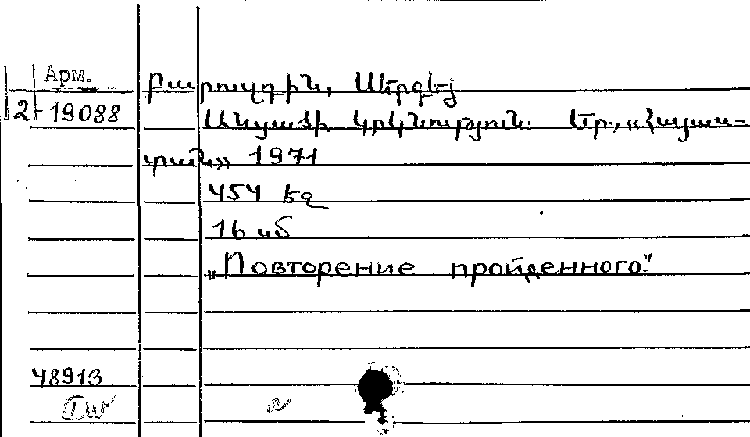 Арм.
2-19088
Բարուզդին, Սերգեյ
Անցածի կրկնություն: Եր., «Հայաս-
տան» 1971
454 էջ
16 սմ
„Повторение пройденного."
48913